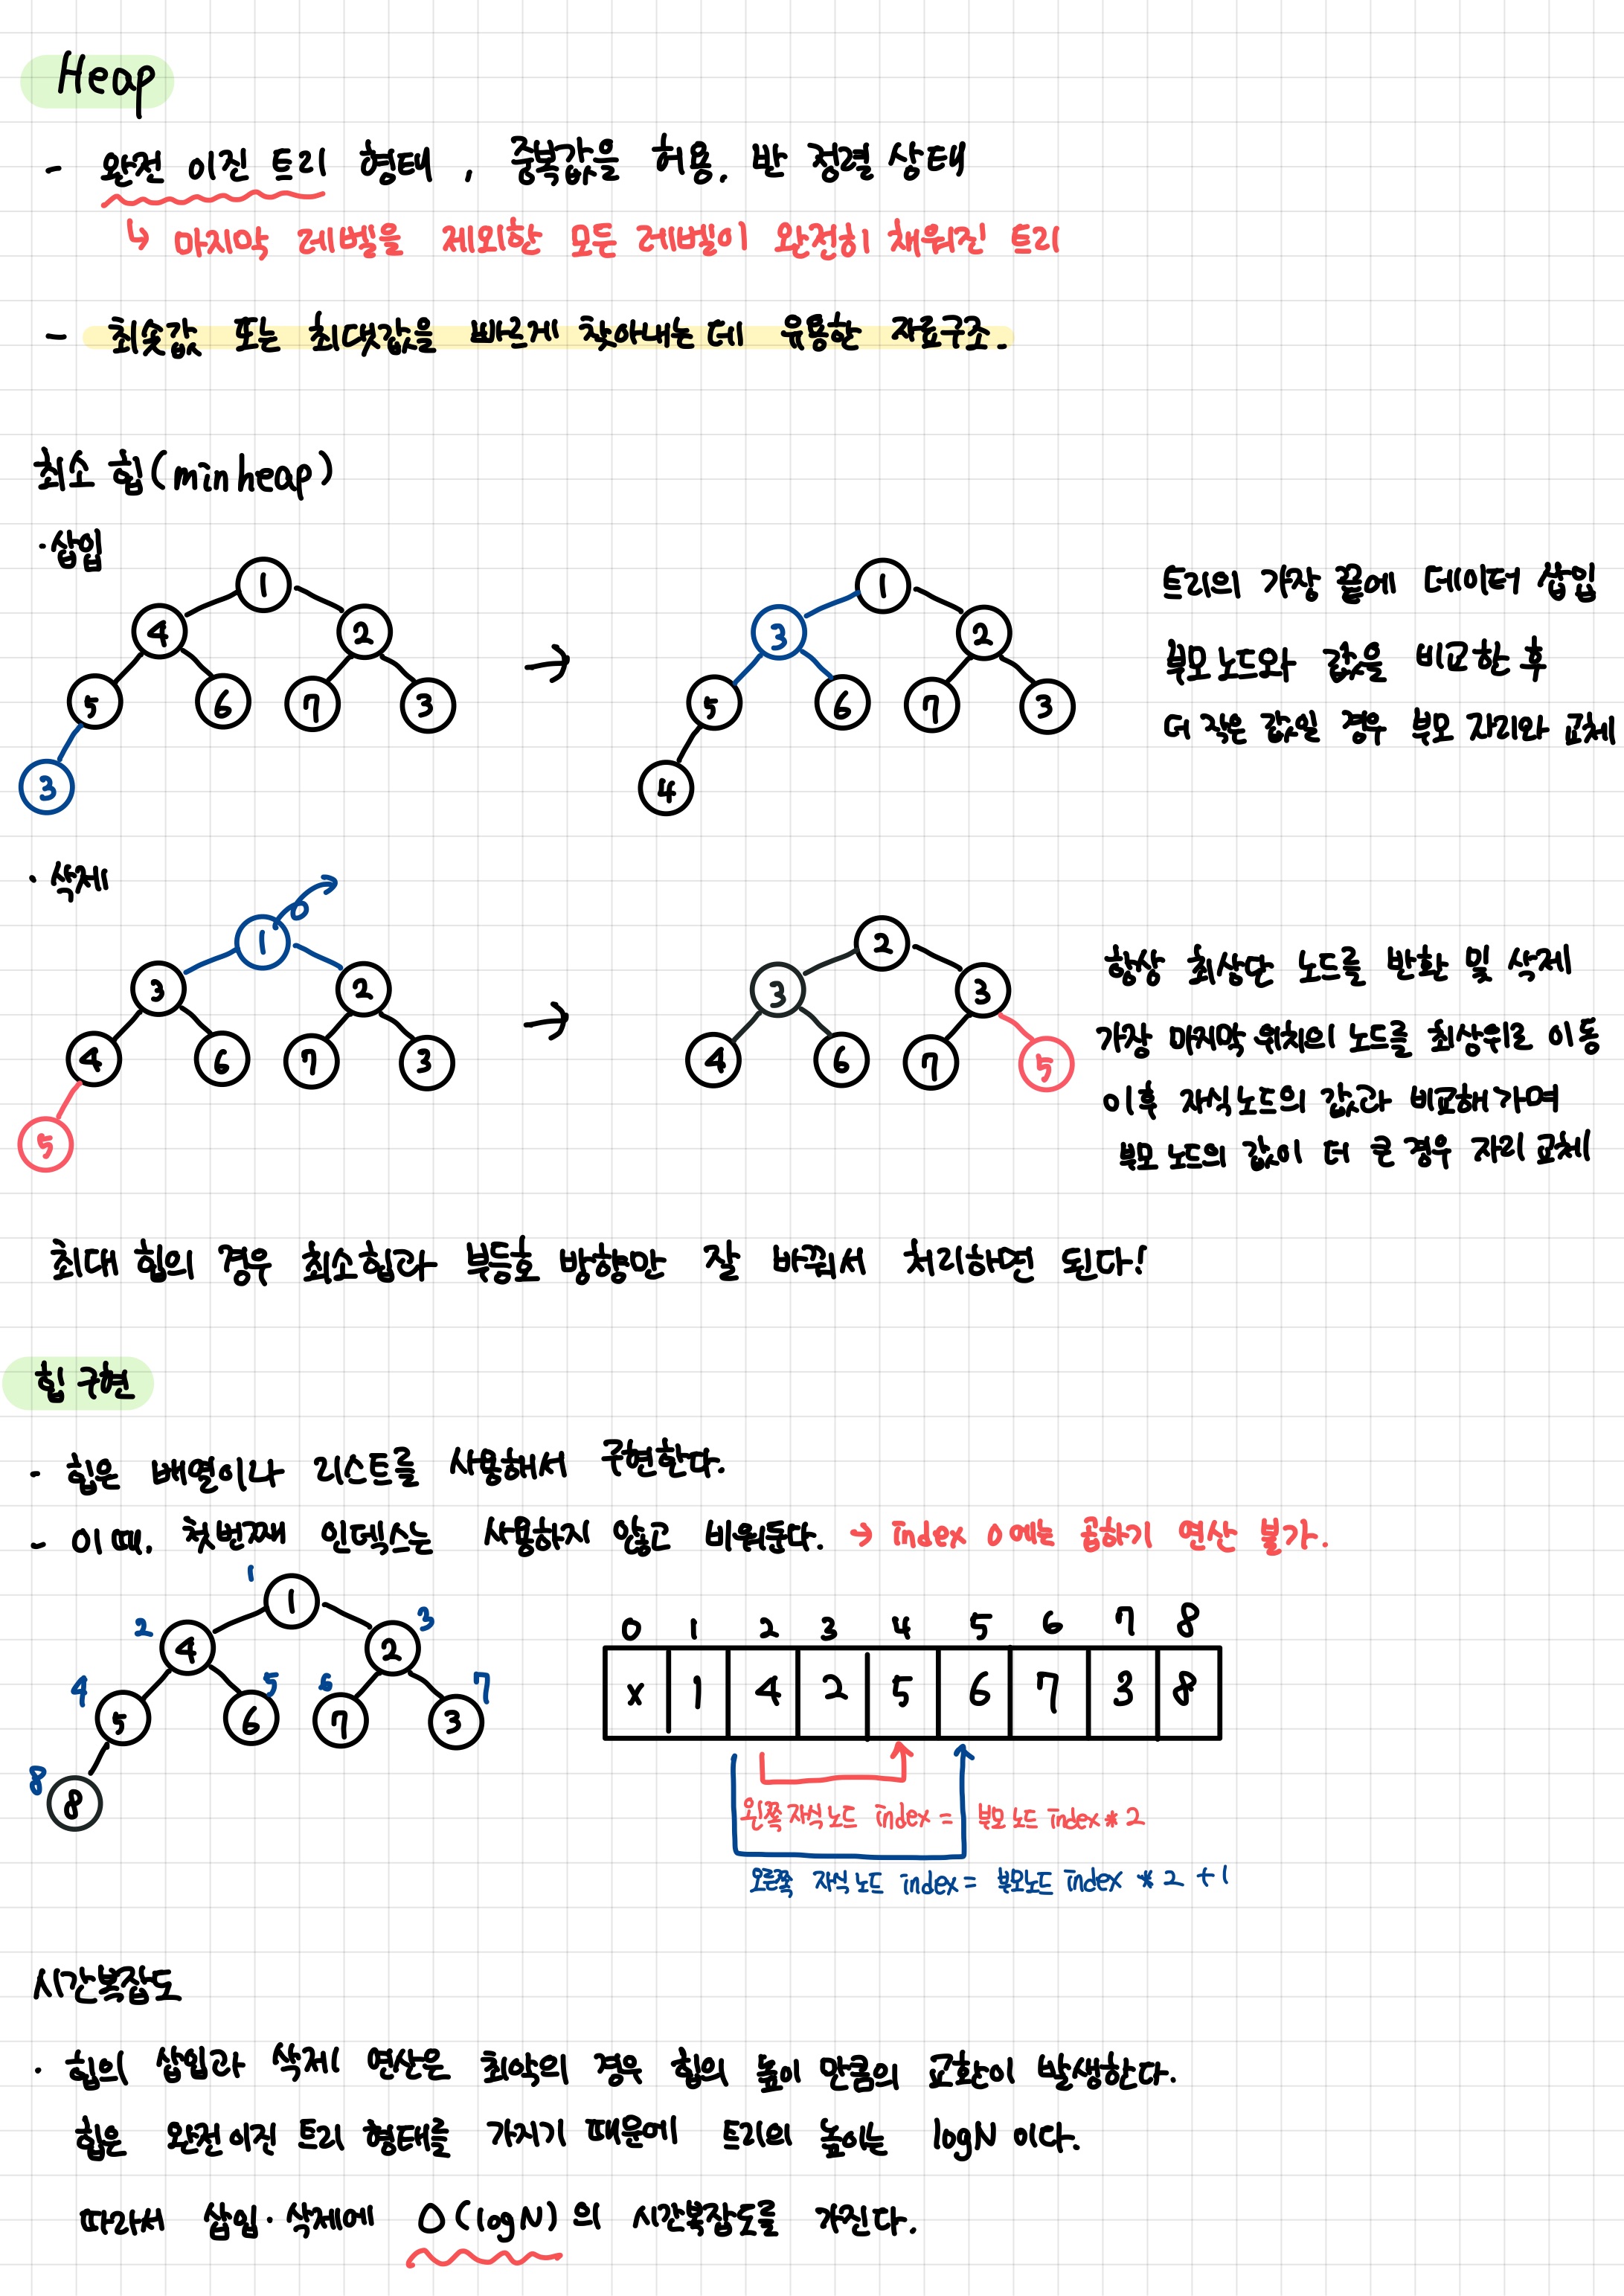 Heap
- 완전 이진 트리 형태, 중복값을 허용. 반 정렬 상태
↳ 마지막 레벨을 제외한 모든 레벨이 완전히 채워진 트리
- 최솟값 또는 최댓값을 빠르게 찾아내는데 유용한 자료구조.
최소 힙(min heap)
·삽입
1
4 2
5 6 7 3
3
→
1
3 2
5 6 7 3
4
트리의 가장 끝에 데이터 삽입
부모 노드와 값을 비교한 후
더 작은 값일 경우 부모 자리와 교체
· 삭제
1
3 2
4 6 7 3
5
→
2
3 3
4 6 7 5
항상 최상단 노드를 반환 및 삭제
가장 마지막 위치의 노드를 최상위로 이동
이후 자식노드의 값과 비교해가며
부모 노드의 값이 더 큰 경우 자리 교체
최대 힙의 경우 최소힙과 부등호 방향만 잘 바꿔서 처리하면 된다!
힙 구현
- 힙은 배열이나 리스트를 사용해서 구현한다.
- 이때, 첫번째 인덱스는 사용하지 않고 비워둔다. → index 0에는 곱하기 연산 불가.
1
1
2 3
4 2
4 5 6 7
5 6 7 3
8
8
0 1 2 3 4 5 6 7 8
x 1 4 2 5 6 7 3 8
왼쪽 자식노드 index = 부모노드 index * 2
오른쪽 자식노드 index = 부모노드 index * 2 + 1
시간복잡도
· 힙의 삽입과 삭제 연산은 최악의 경우 힙의 높이 만큼의 교환이 발생한다.
힙은 완전이진 트리 형태를 가지기 때문에 트리의 높이는 logN 이다.
따라서 삽입·삭제에 O(logN)의 시간복잡도를 가진다.